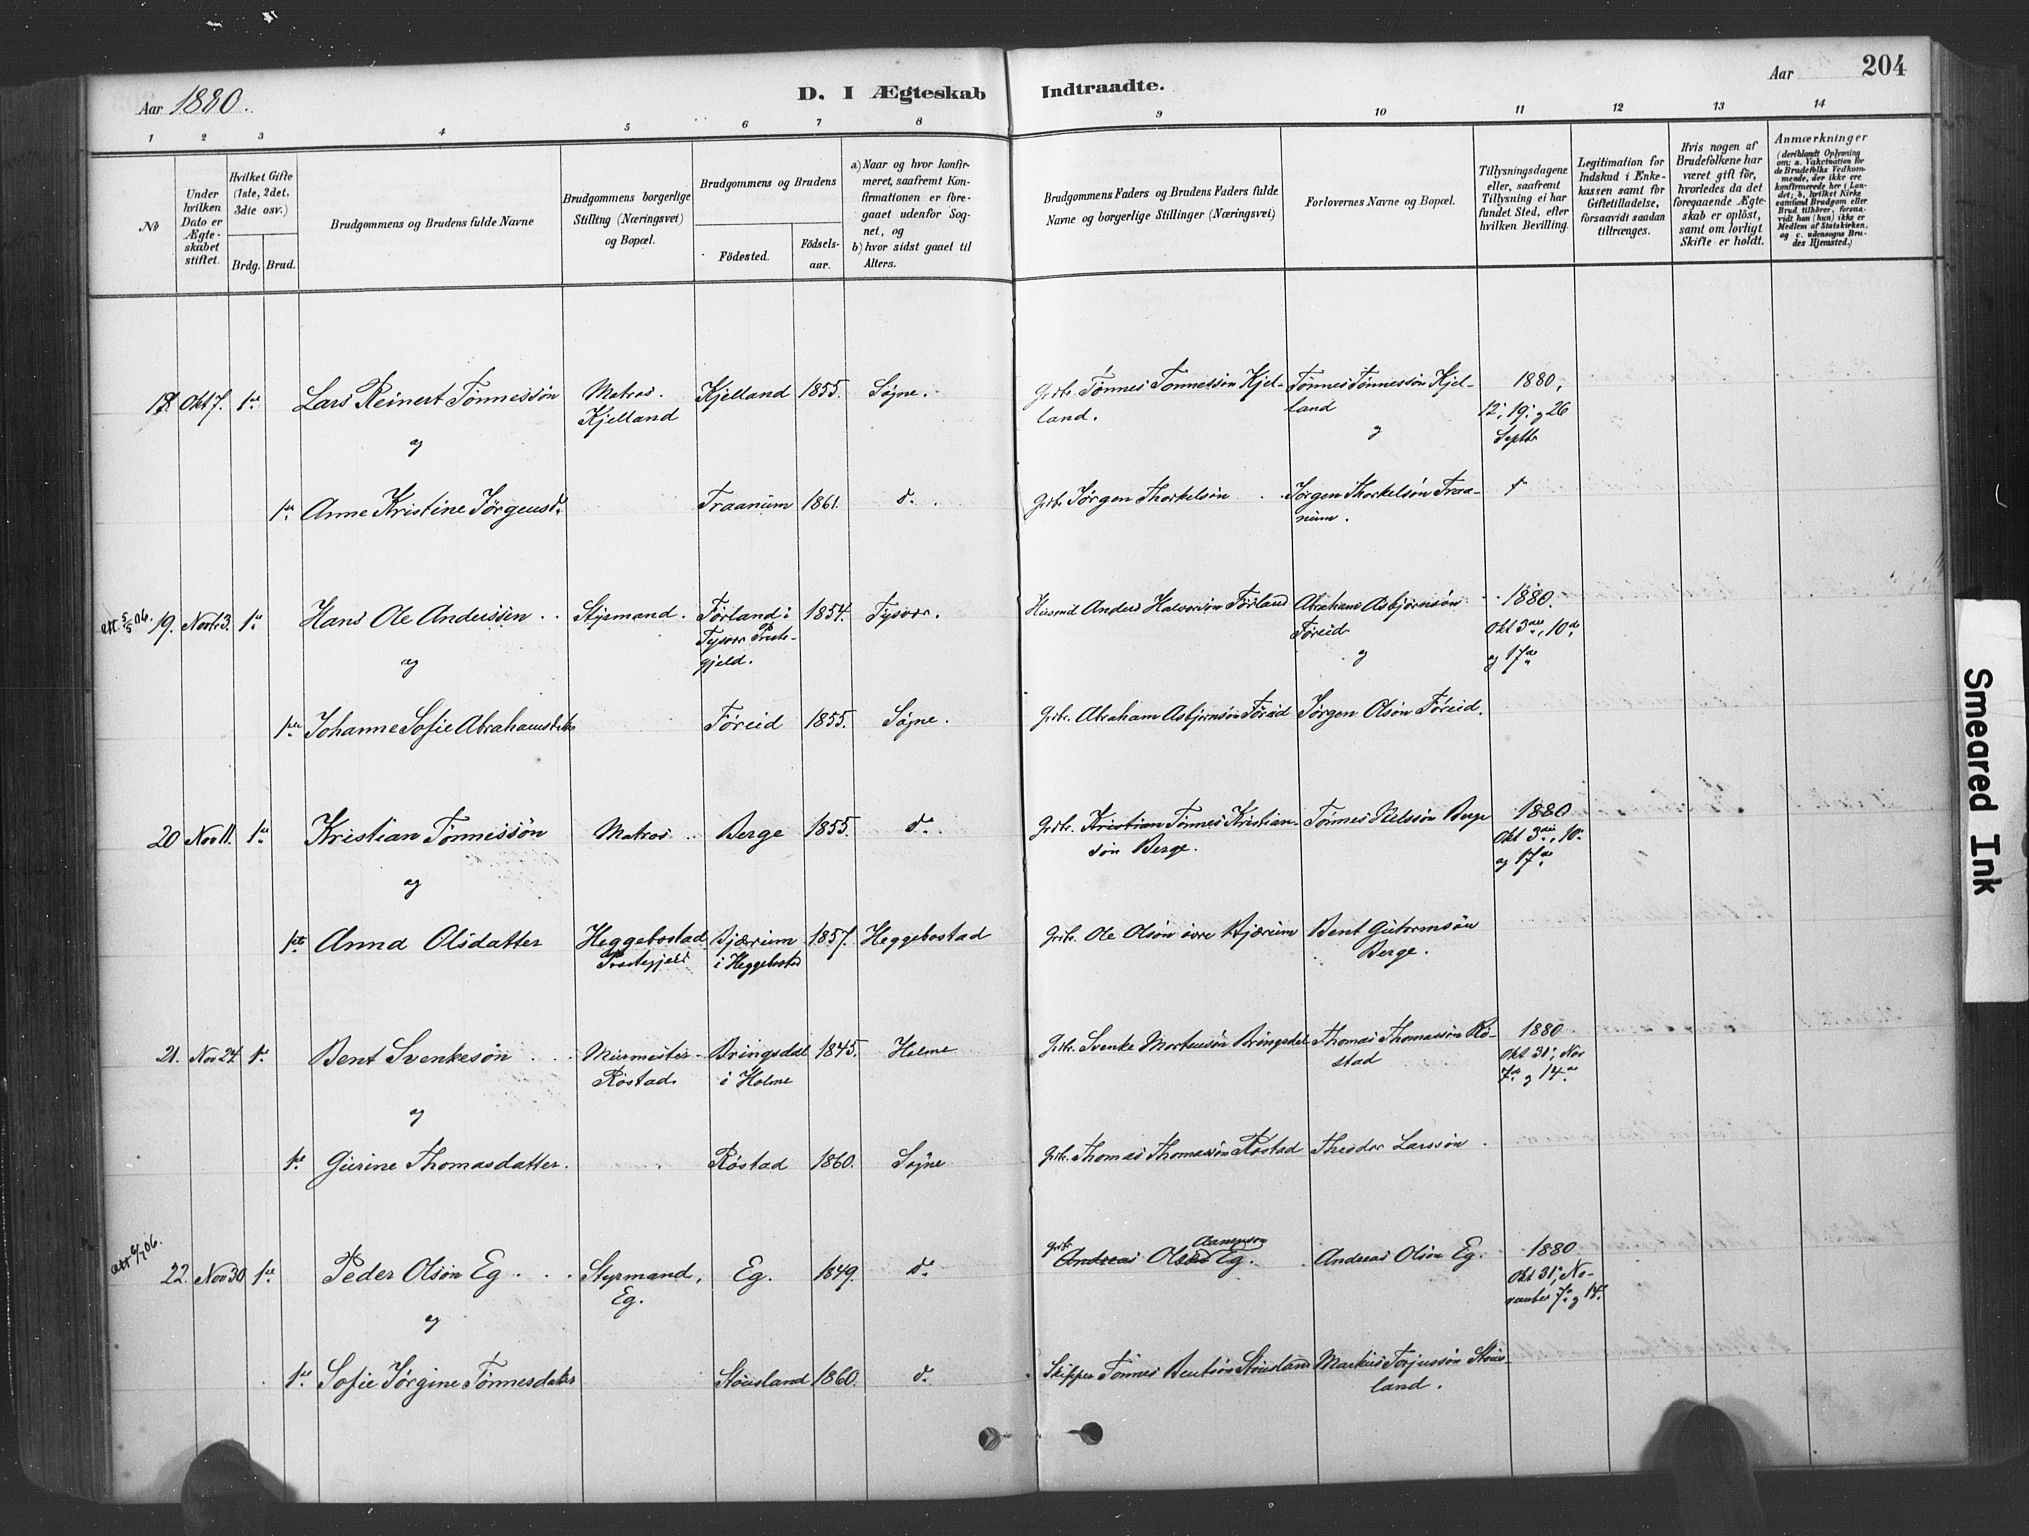 Aar 1880.
D. I Ægteskab Indtraadte.
Aar
204
1 2 3 4 5 6 7 8 9 10 11 12 13 14
No
Under hvilken Dato er Ægteskabet stiftet.
Hvilket Gifte (1ste, 2det, 3die osv.)
Brdg. Brud.
Brudgommens og Brudens fulde Navne
Brudgommens borgerlige Stilling (Næringsvei) og Bopæl.
Brudgommens og Brudens
Födested.
Födsels-aar.
a) Naar og hvor konfirmeret, saafremt Konfirmationen er foregaaet udenfor Sognet, og
b) hvor sidst gaaet til Alters.
Brudgommens Faders og Brudens Faders fulde Navne og borgerlige Stillinger (Næringsvei)
Forlovernes Navne og Bopæl.
Tillysningsdagene eller, saafremt Tillysning ei har fundet Sted, efter hvilken Bevilling.
Legitimation for Indskud i Enkekassen samt for Giftetilladelse, forsaavidt saadan tiltrænges.
Hvis nogen af Brudefolkene har været gift før, hvorledes da det foregaaende Ægteskab er oplöst, samt om lovligt Skifte er holdt.
Anmærkninger
(deriblandt Oplysning om: a. Vakcination for de Brudefolks Vedkommende, der ikke ere konfirmerede her i Landet; b. hvilket Kirkesamfund Brudgom eller Brud tilhörer, forsaavidt han (hun) ikke er Medlem af Statskirken, og c. udensogns Brudes Hjemsted.)
18. Okt 7. 1ste Lars Reinert Tønnessøn Matros. Kjelland Kjelland 1855. Søgne. Grdbr. Tønnes Tønnessøn Kjelland. Tønnes Tønnessøn Kjelland 1880, 12', 19' og 26 Septbr
og
1ste Anne Kristine Jørgensd. Traanum 1861. do. Grdbr Jørgen Thorkelsøn Jørgen Thorkelsøn Traanum.
att. 5/5 06.
19. Novbr. 3. 1ste Hans Ole Anderssen Styrmand. Førland i Tysvær Prstegjeld. 1854. Tysvær. Husmd Anders Halvorsøn Førland Abraham Asbjørnsøn Føreid 1880. Okt 3die, 10de og 17de
og
1ste Johanne Sofie Abrahamsdatter Føreid 1855. Søgne. Grdbr. Abraham Asbjørnsøn Føreid Jørgen Olsøn Føreid.
20 Nov 11. 1ste Kristian Tønnessøn Matros Berge 1855. do. Grdbr. Kristian Tønnes Kristiansøn Berge. Tønnes Nielssøn Berge 1880 Okt 3die, 10de og 17de
og
1ste Anna Olsdatter Heggebostad Præstegjeld Bjærum i Heggebostad 1857. Heggebostad Grdbr. Ole Olsøn øvre Bjærum Bent Gutormsøn Berge.
21. Nov 24. 1ste Bent Svenkesøn Murmester Røstad Bringsdal i Holme 1845. Holme Grdbr. Svenke Mortensøn Bringsdal Thomas Thomassøn Røstad 1880 Okt 31', Nov 7de og 14de
og
1ste Gurine Thomasdatter. Røstad 1860. Søgne Grdbr. Thomas Thomassøn Røstad Theodor Larssøn
att 6/7 06.
22. Nov 30 1ste Peder Olsøn Eg Styrmand, Eg. Eg. 1849. do. Grdbr Andreas Olsen Aanenson Eg. Andreas Olsøn Eg. 1880 Okt 31', November 7de og 14.
og
1ste Sofie Jørgine Tønnesdatter Stousland 1860. do. Skipper Tønnes Bentsøn Stousland Markus Torjussøn Stousland.
Smeared Ink